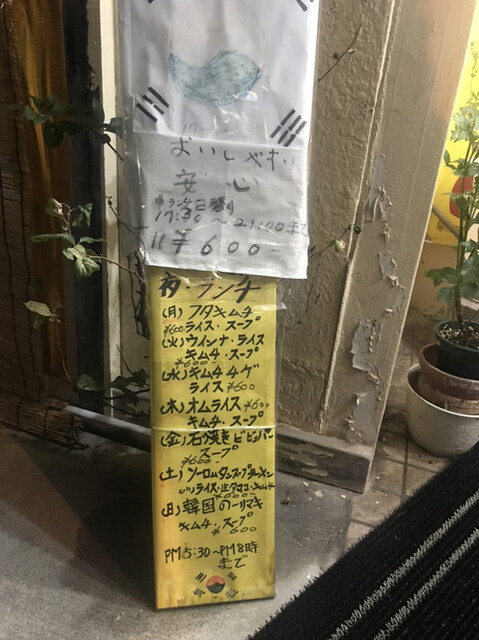 おいしやすい
安心
17:30～21:00まで
¥600-
夜・ランチ
(月)ブタキムチ
¥600ライス・スープ
(火)ウインナ・ライス
キムチ・スープ
¥600
(水)キムチチゲ
ライス¥600
(木)オムライス¥600
キムチ・スープ
(金)石焼きビビンバ
スープ
¥600
(土)ソーロムタンスープラーメン
ライス・生タマゴ・キムチ
¥600
(日)韓国のーリマキ
キムチ・スープ
¥600
PM5:30～PM8時
まで